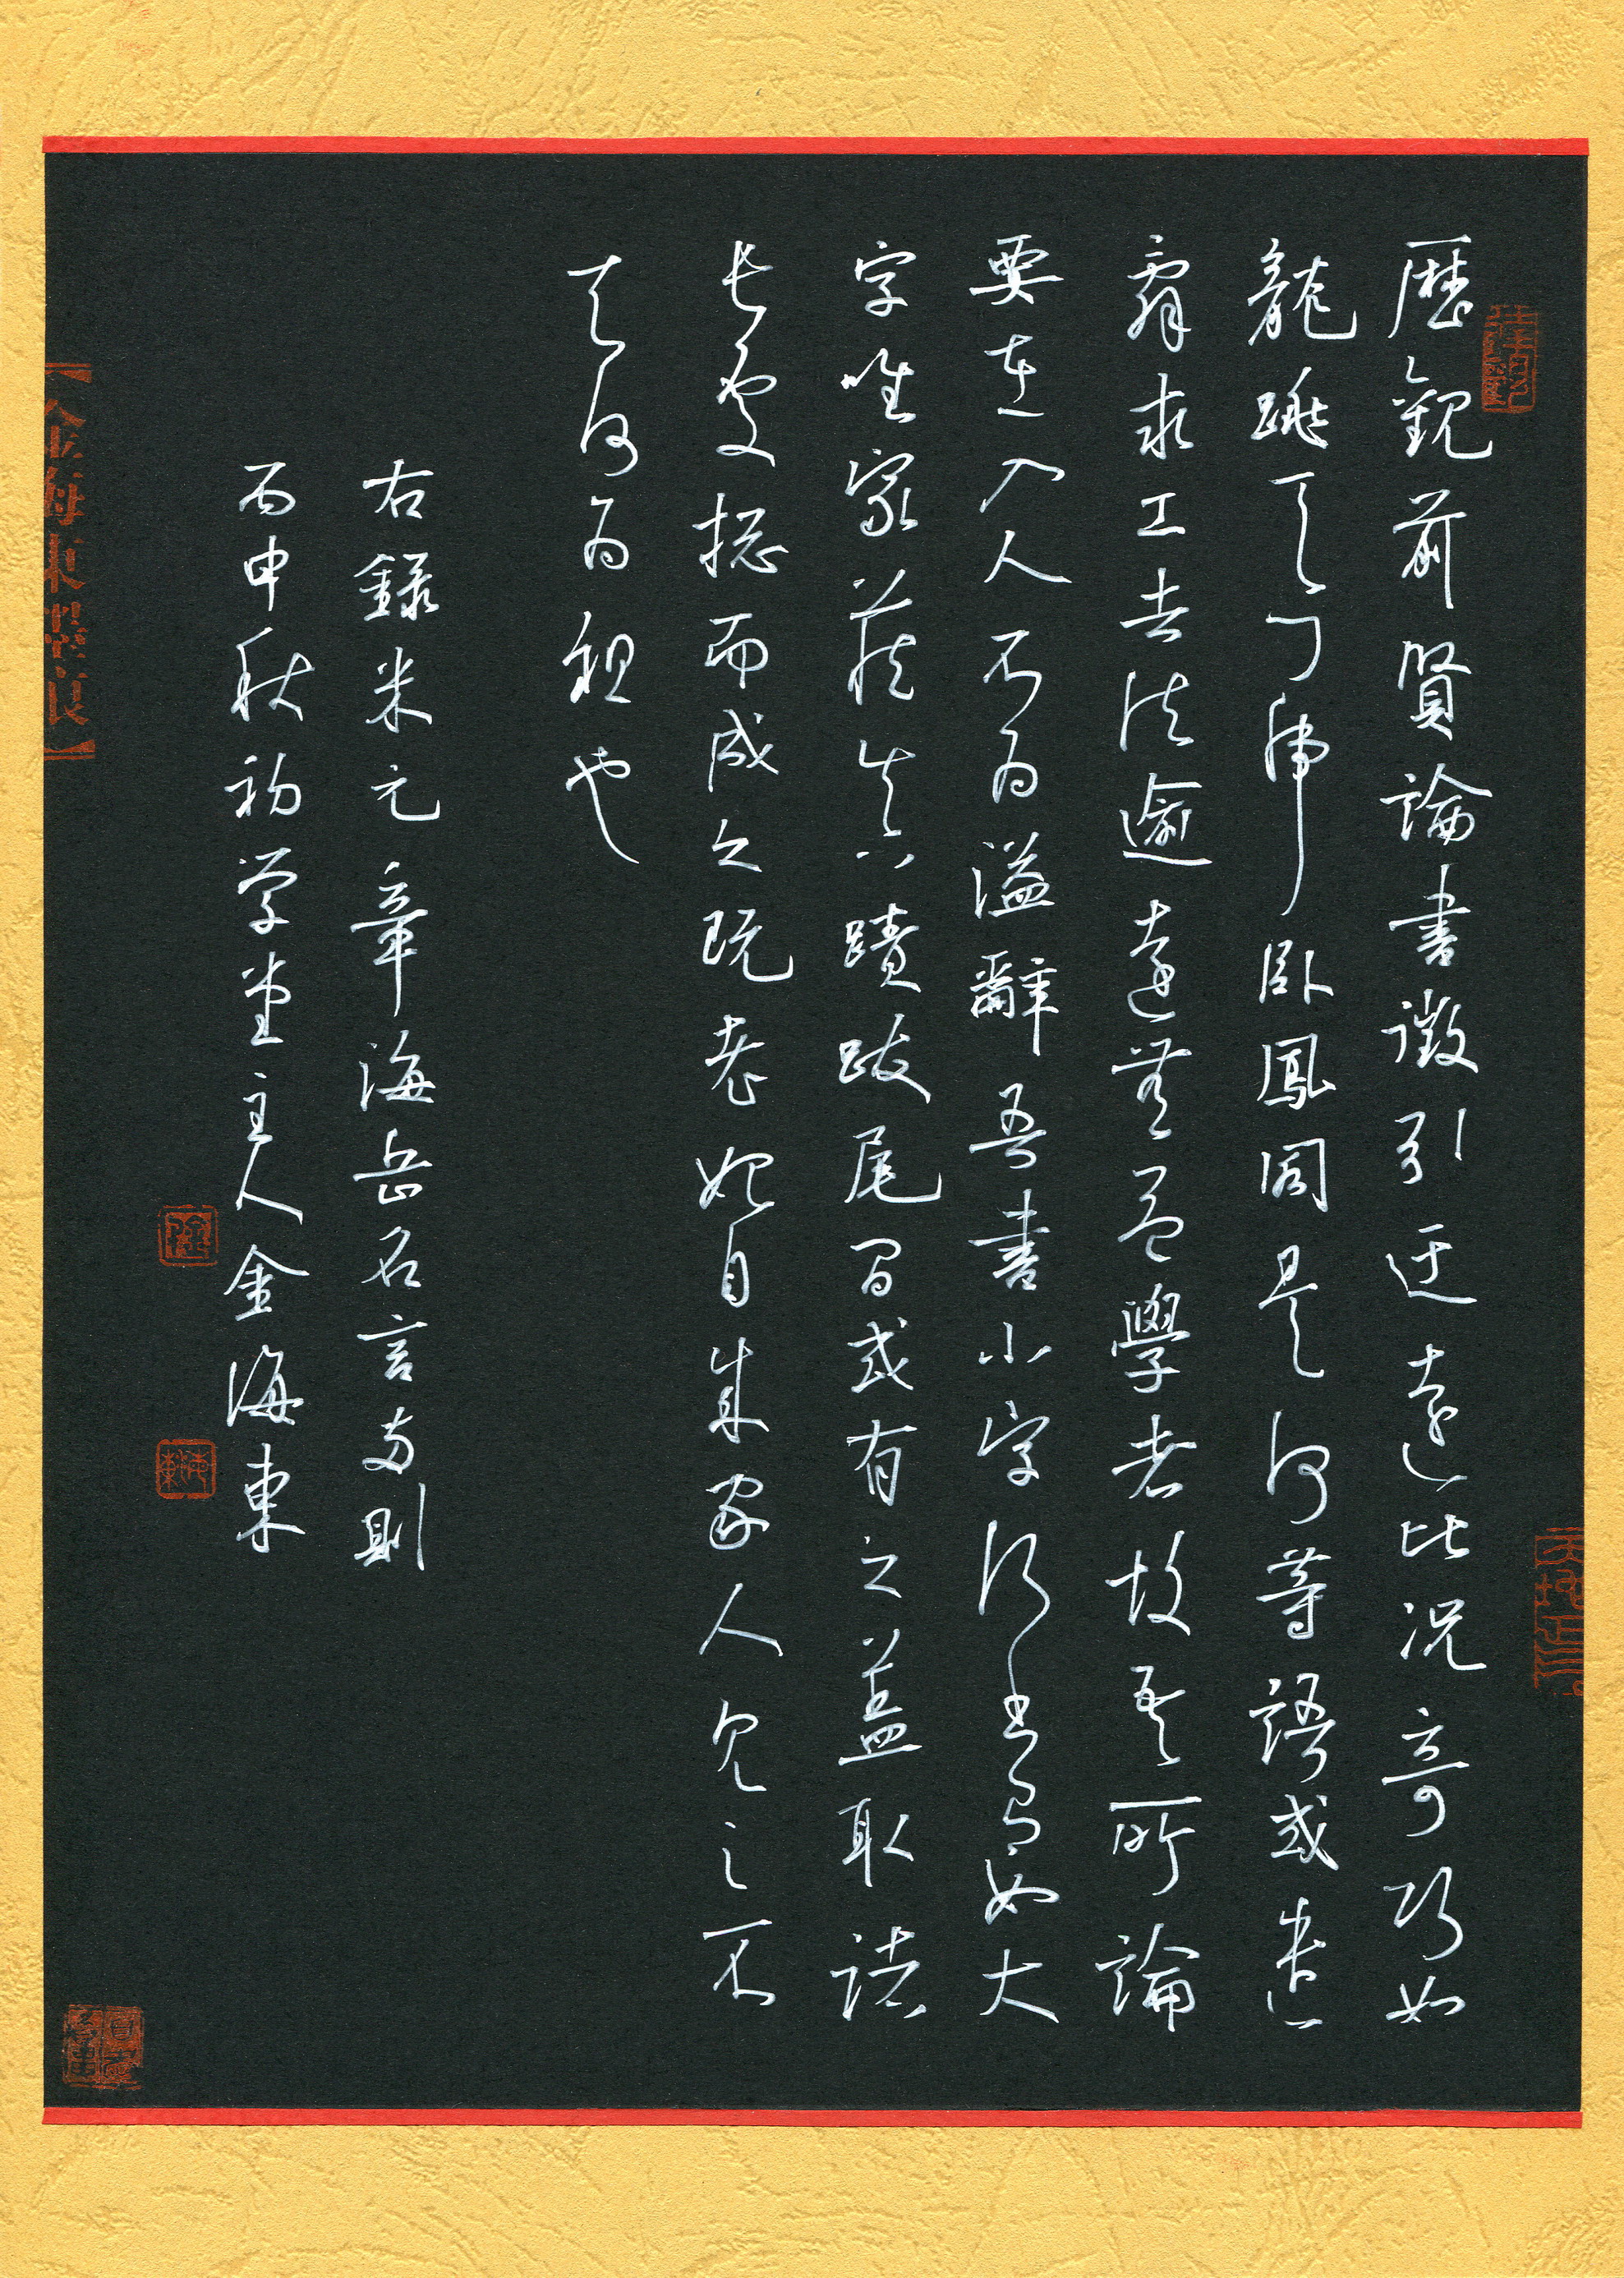 歷觀前賢論書徵引迂遠比況奇巧如
龍跳天門虎臥鳳閣是何等語或遣
辭求工去法逾遠無益學者故吾所論
要在入人不為溢辭吾書小字行書有如大
字唯家藏真蹟跋尾間或有之蓋取諸
長處捴而成之既老始自成家人見之不
知何為祖也
右錄米元章海岳名言兩則
丙申秋初学堂主人金海東
【金海東墨痕】